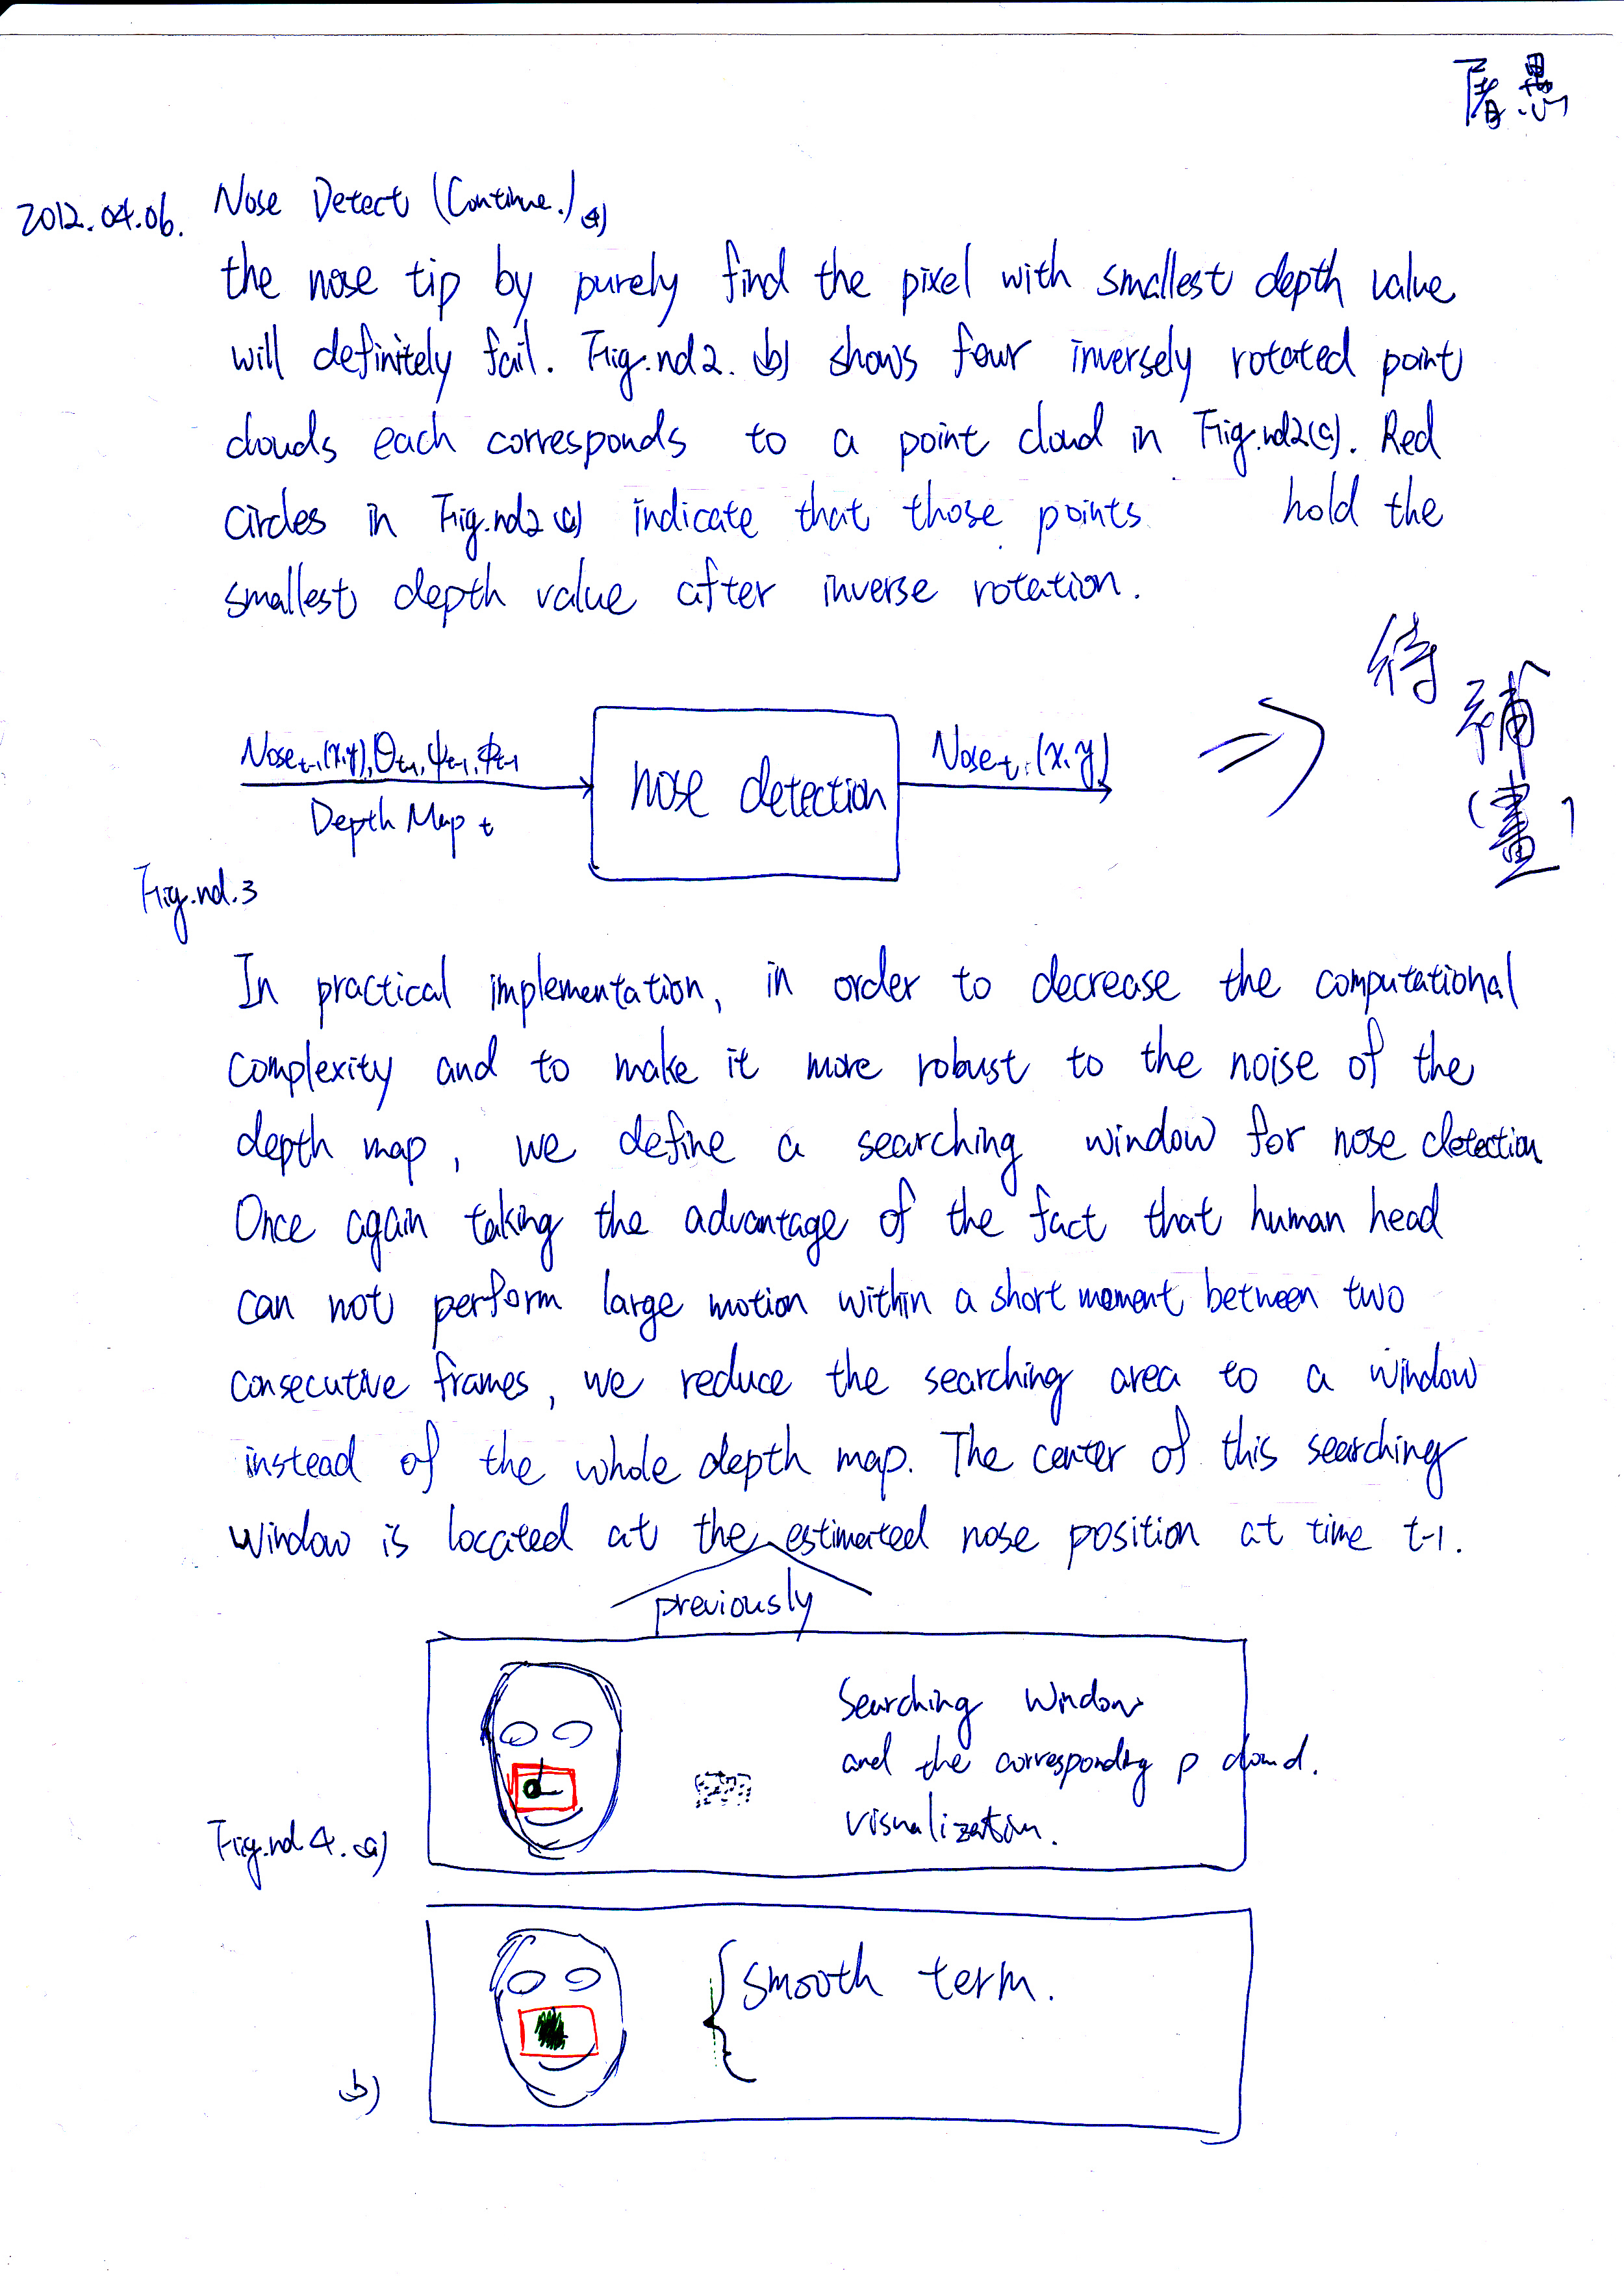 2012.04.06. Nose Detect (Continue.) (4)
the nose tip by purely find the pixel with smallest depth value
will definitely fail. Fig.nd2. (b) shows four inversely rotated point
clouds each corresponds to a point cloud in Fig.nd2(a). Red
circles in Fig.nd2 (a) indicate that those points hold the
smallest depth value after inverse rotation.
Nose t-1 (x,y), θt-1, ψt-1, ϕt-1
Depth Map t
nose detection
Nose t (x,y)
⇒ 待補(畫)
Fig.nd.3
In practical implementation, in order to decrease the computational
complexity and to make it more robust to the noise of the
depth map, we define a searching window for nose detection
Once again taking the advantage of the fact that human head
can not perform large motion within a short moment between two
consecutive frames, we reduce the searching area to a window
instead of the whole depth map. The center of this searching
window is located at the estimated nose position at time t-1.
previously
Searching Window
and the corresponding p cloud.
visualization.
Fig.nd 4. (a)
smooth term.
(b)